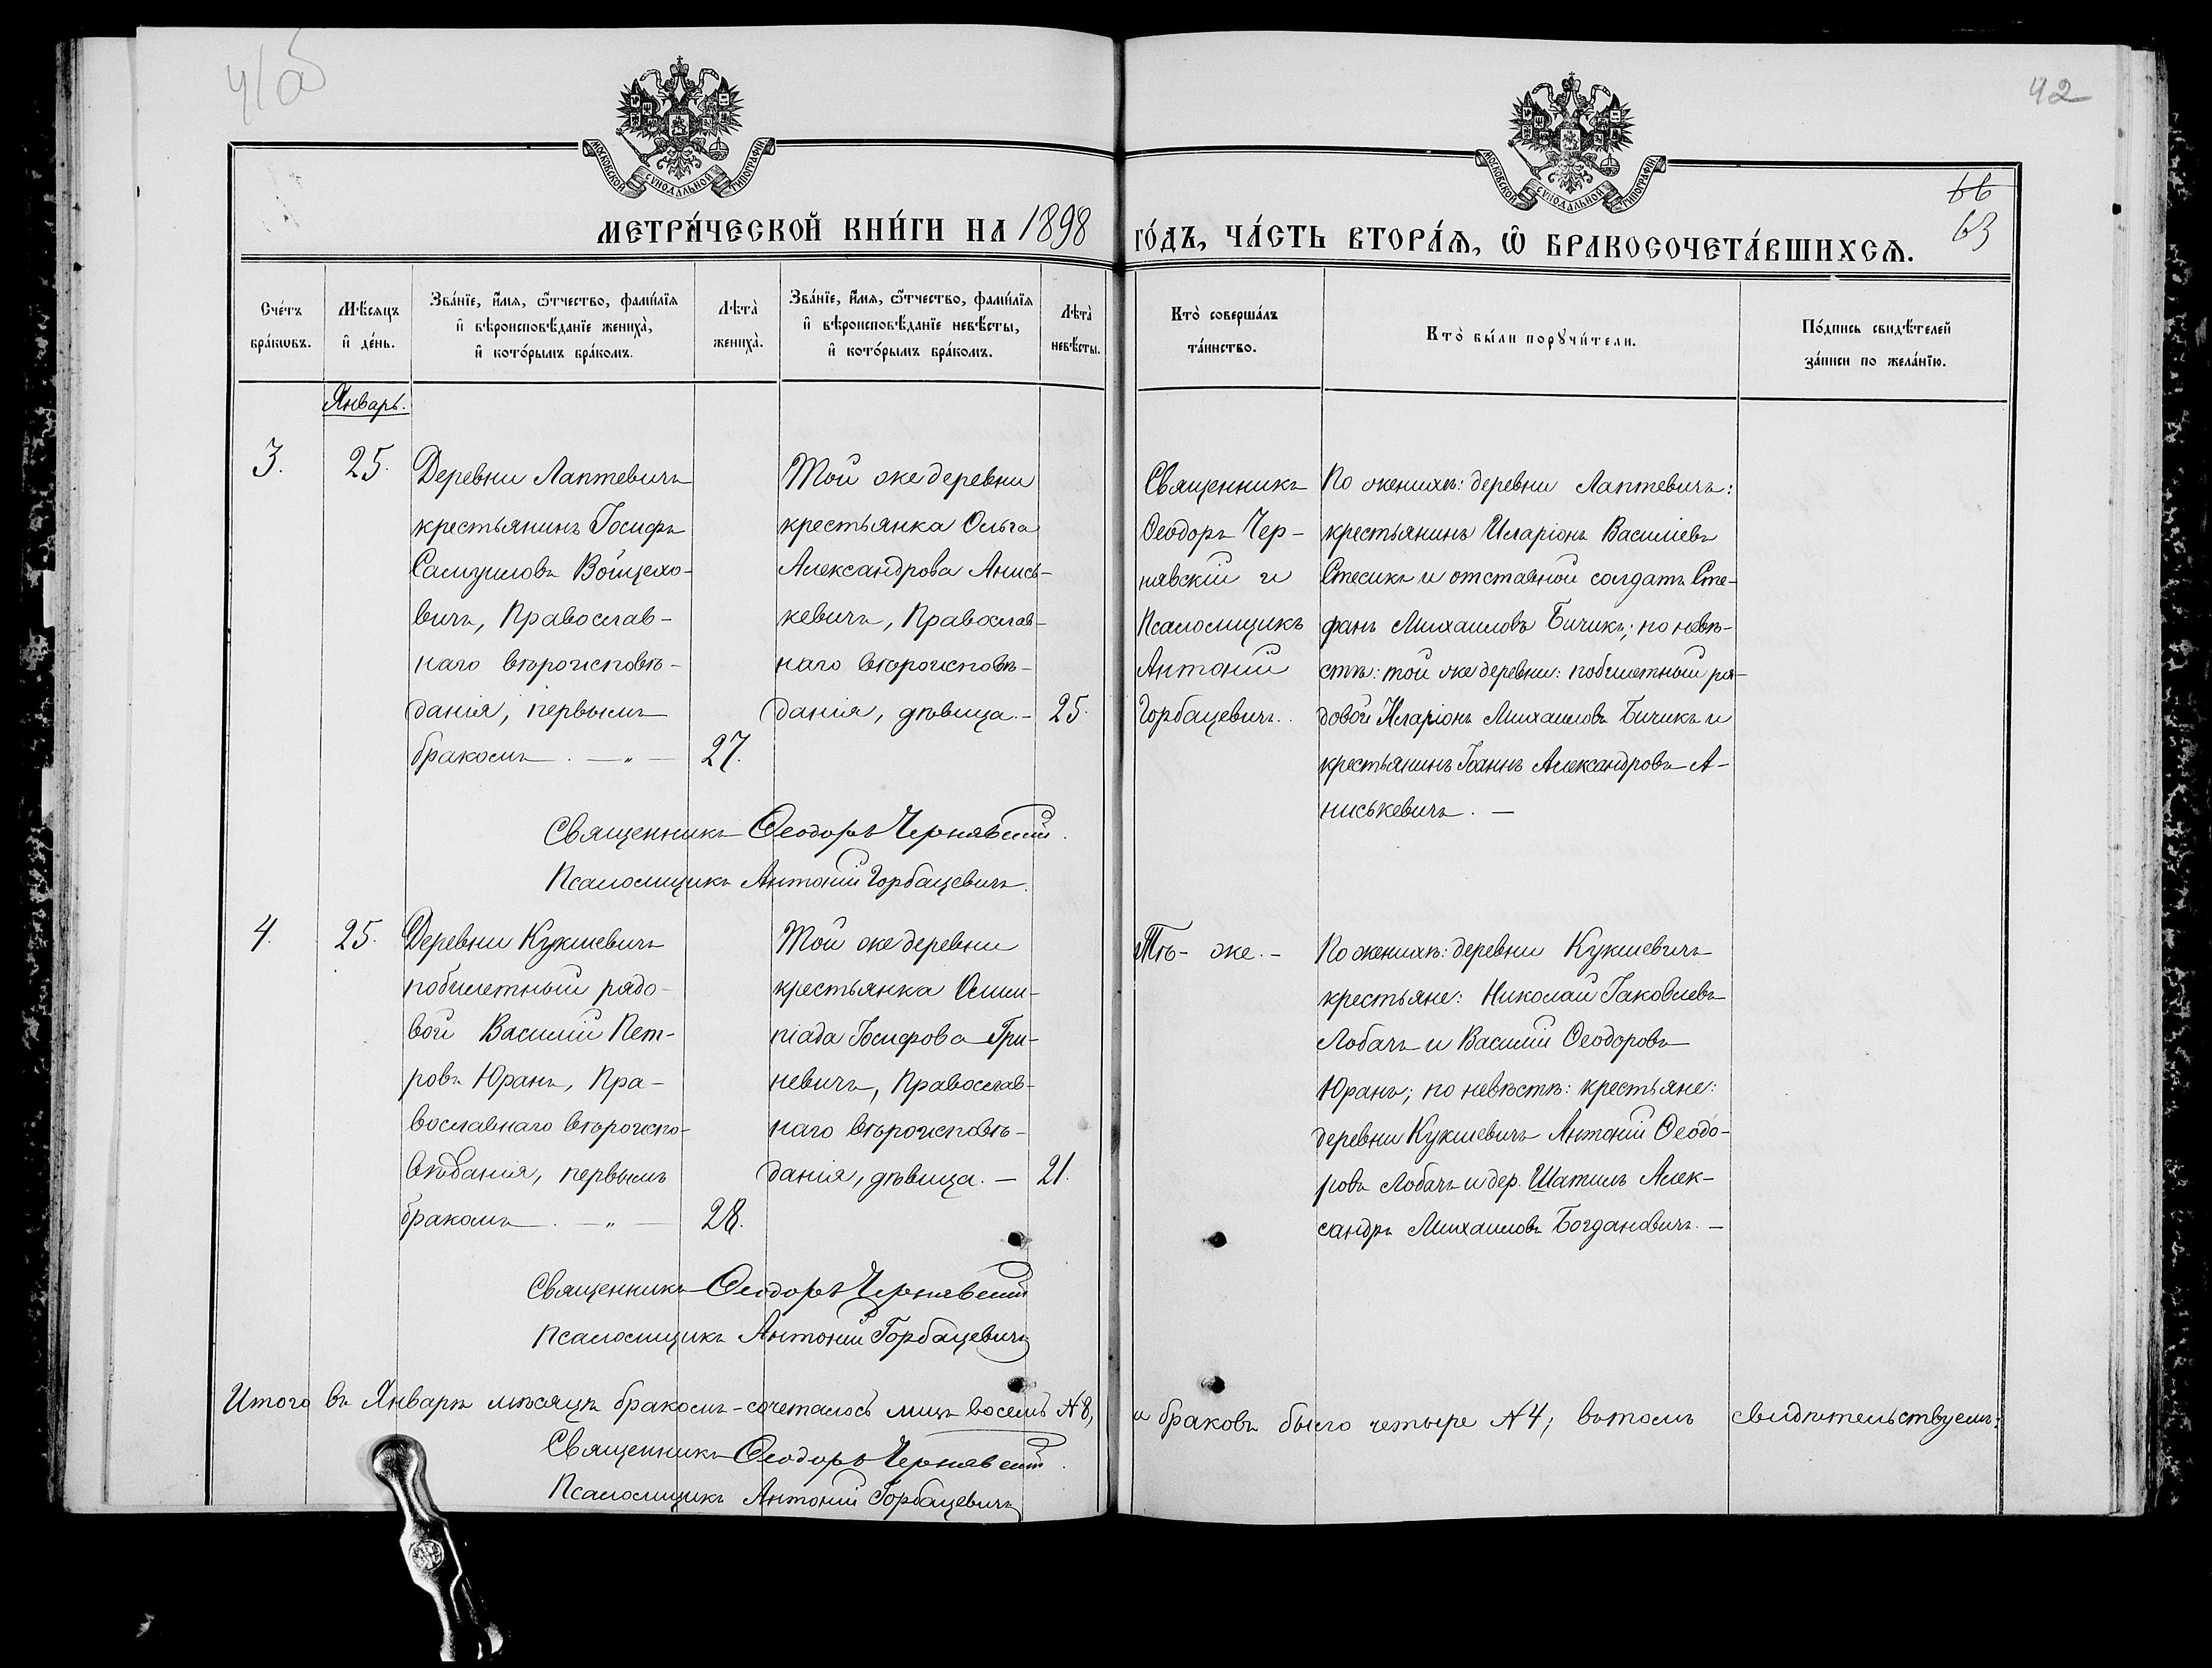 41об
42
МОСКОВСКОЙ СѴНОДАЛЬНОЙ ТИПОГРАФІИ
МОСКОВСКОЙ СѴНОДАЛЬНОЙ ТИПОГРАФІИ
66
63
МЕТРИ́ЧЕСКОЙ КНИ́ГИ НА 1898
ГО́ДЪ, ЧА́СТЬ ВТОРА́Ѧ, Ѡ҆ БРАКОСОЧЕТА́ВШИХСѦ.
Сче́тъ
бра́ковъ.
Мѣ́сяцъ
и҆ де́нь.
Зва́нїе, и҆́мя, ѻ҆́тчество, фами́лїя
и҆ вѣроисповѣ́данїе жениха̀,
и҆ кото́рымъ бра́комъ.
Лѣта̀
жениха̀.
Зва́нїе, и҆́мя, ѻ҆́тчество, фами́лїя
и҆ вѣроисповѣ́данїе невѣ́сты,
и҆ кото́рымъ бра́комъ.
Лѣта̀
невѣ́сты.
Кто̀ соверша́лъ
та́инство.
Кто̀ бы́ли порꙋчи́тели.
По́дпись свидѣ́телей
за́писи по жела́нїю.
Январь.
3.
25.
Деревни Лаптевичъ
крестьянинъ Іосифъ
Самуиловъ Войцехо-
вичъ, Православ-
наго вѣроисповѣ-
данія, первымъ
бракомъ . — „ —
27.
Той же деревни
крестьянка Ольга
Александрова Анись-
кевичъ, Православ-
наго вѣроисповѣ-
данія, дѣвица. –
25.
Священникъ
Ѳеодоръ Чер-
нявскій и
Псаломщикъ
Антоній
Горбацевичъ.
По женихѣ: деревни Лаптевичъ:
крестьянинъ Иларіонъ Василіевъ
Стесикъ и отставной солдатъ Сте-
фанъ Михаиловъ Бичикъ; по невѣ-
стѣ: той же деревни: побилетный ря-
довой Иларіонъ Михаиловъ Бичикъ и
крестьянинъ Іоаннъ Александровъ А-
ниськевичъ. —
Священникъ Ѳеодоръ Чернявскій.
Псаломщикъ Антоній Горбацевичъ.
4.
25.
Деревни Кукшевичъ
побилетный рядо-
вой Василій Пет-
ровъ Юранъ, Пра-
вославнаго вѣроиспо-
вѣданія, первымъ
бракомъ . — „ —
28.
Той же деревни
крестьянка Олим-
піада Іосифова Гри-
невичъ, Православ-
наго вѣроисповѣ-
данія, дѣвица. —
21.
Тѣ- же. –
По женихѣ: деревни Кукшевичъ
крестьяне: Николай Іаковлевъ
Лобачъ и Василій Ѳеодоровъ
Юранъ; по невѣстѣ: крестьяне:
деревни Кукшевичъ Антоній Ѳеодо-
ровъ Лобачъ и дер. Шатилъ Алек-
сандръ Михаиловъ Богдановичъ. —
Священникъ Ѳеодоръ Чернявскій
Псаломщикъ Антоній Горбацевичъ
Итого въ Январѣ мѣсяцѣ бракомъ-сочеталось лицъ восемь №8, и браковъ было четыре №4; въ томъ свидѣтельствуемъ:
Священникъ Ѳеодоръ Чернявскій.
Псаломщикъ Антоній Горбацевичъ